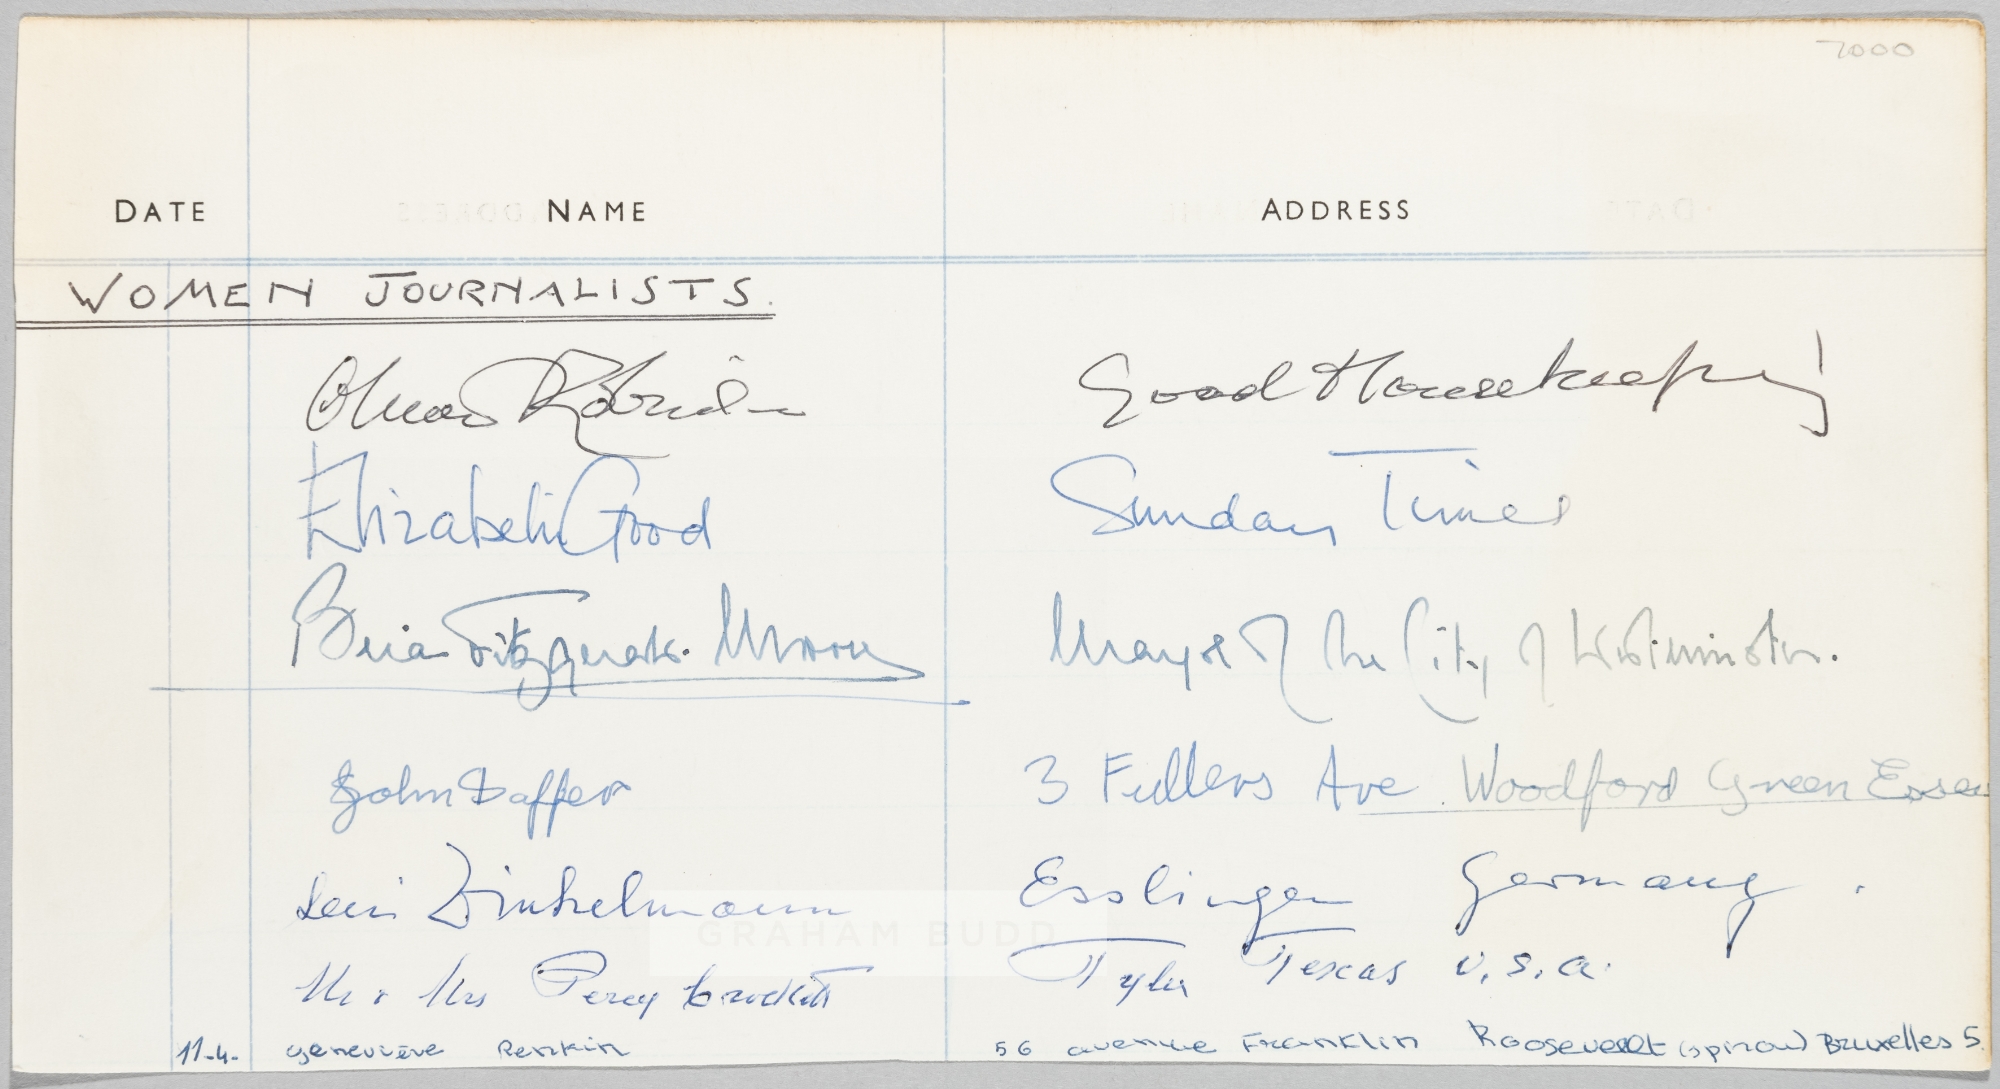 7000
DATE NAME ADDRESS
WOMEN JOURNALISTS.
Good Housekeeping
Elizabeth Good Sunday Times
Brian Fitzgerald Moore Mayor of the City of Westminster.
John Daffer 3 Fullers Ave Woodford Green Essex
Dinkelmann Esslingen Germany.
Mr & Mrs Percy Tyler Texas U.S.A.
GRAHAM BUDD
11-4- geneviève Renkin 56 avenue Franklin Roosevelt (spirou) Bruxelles 5.